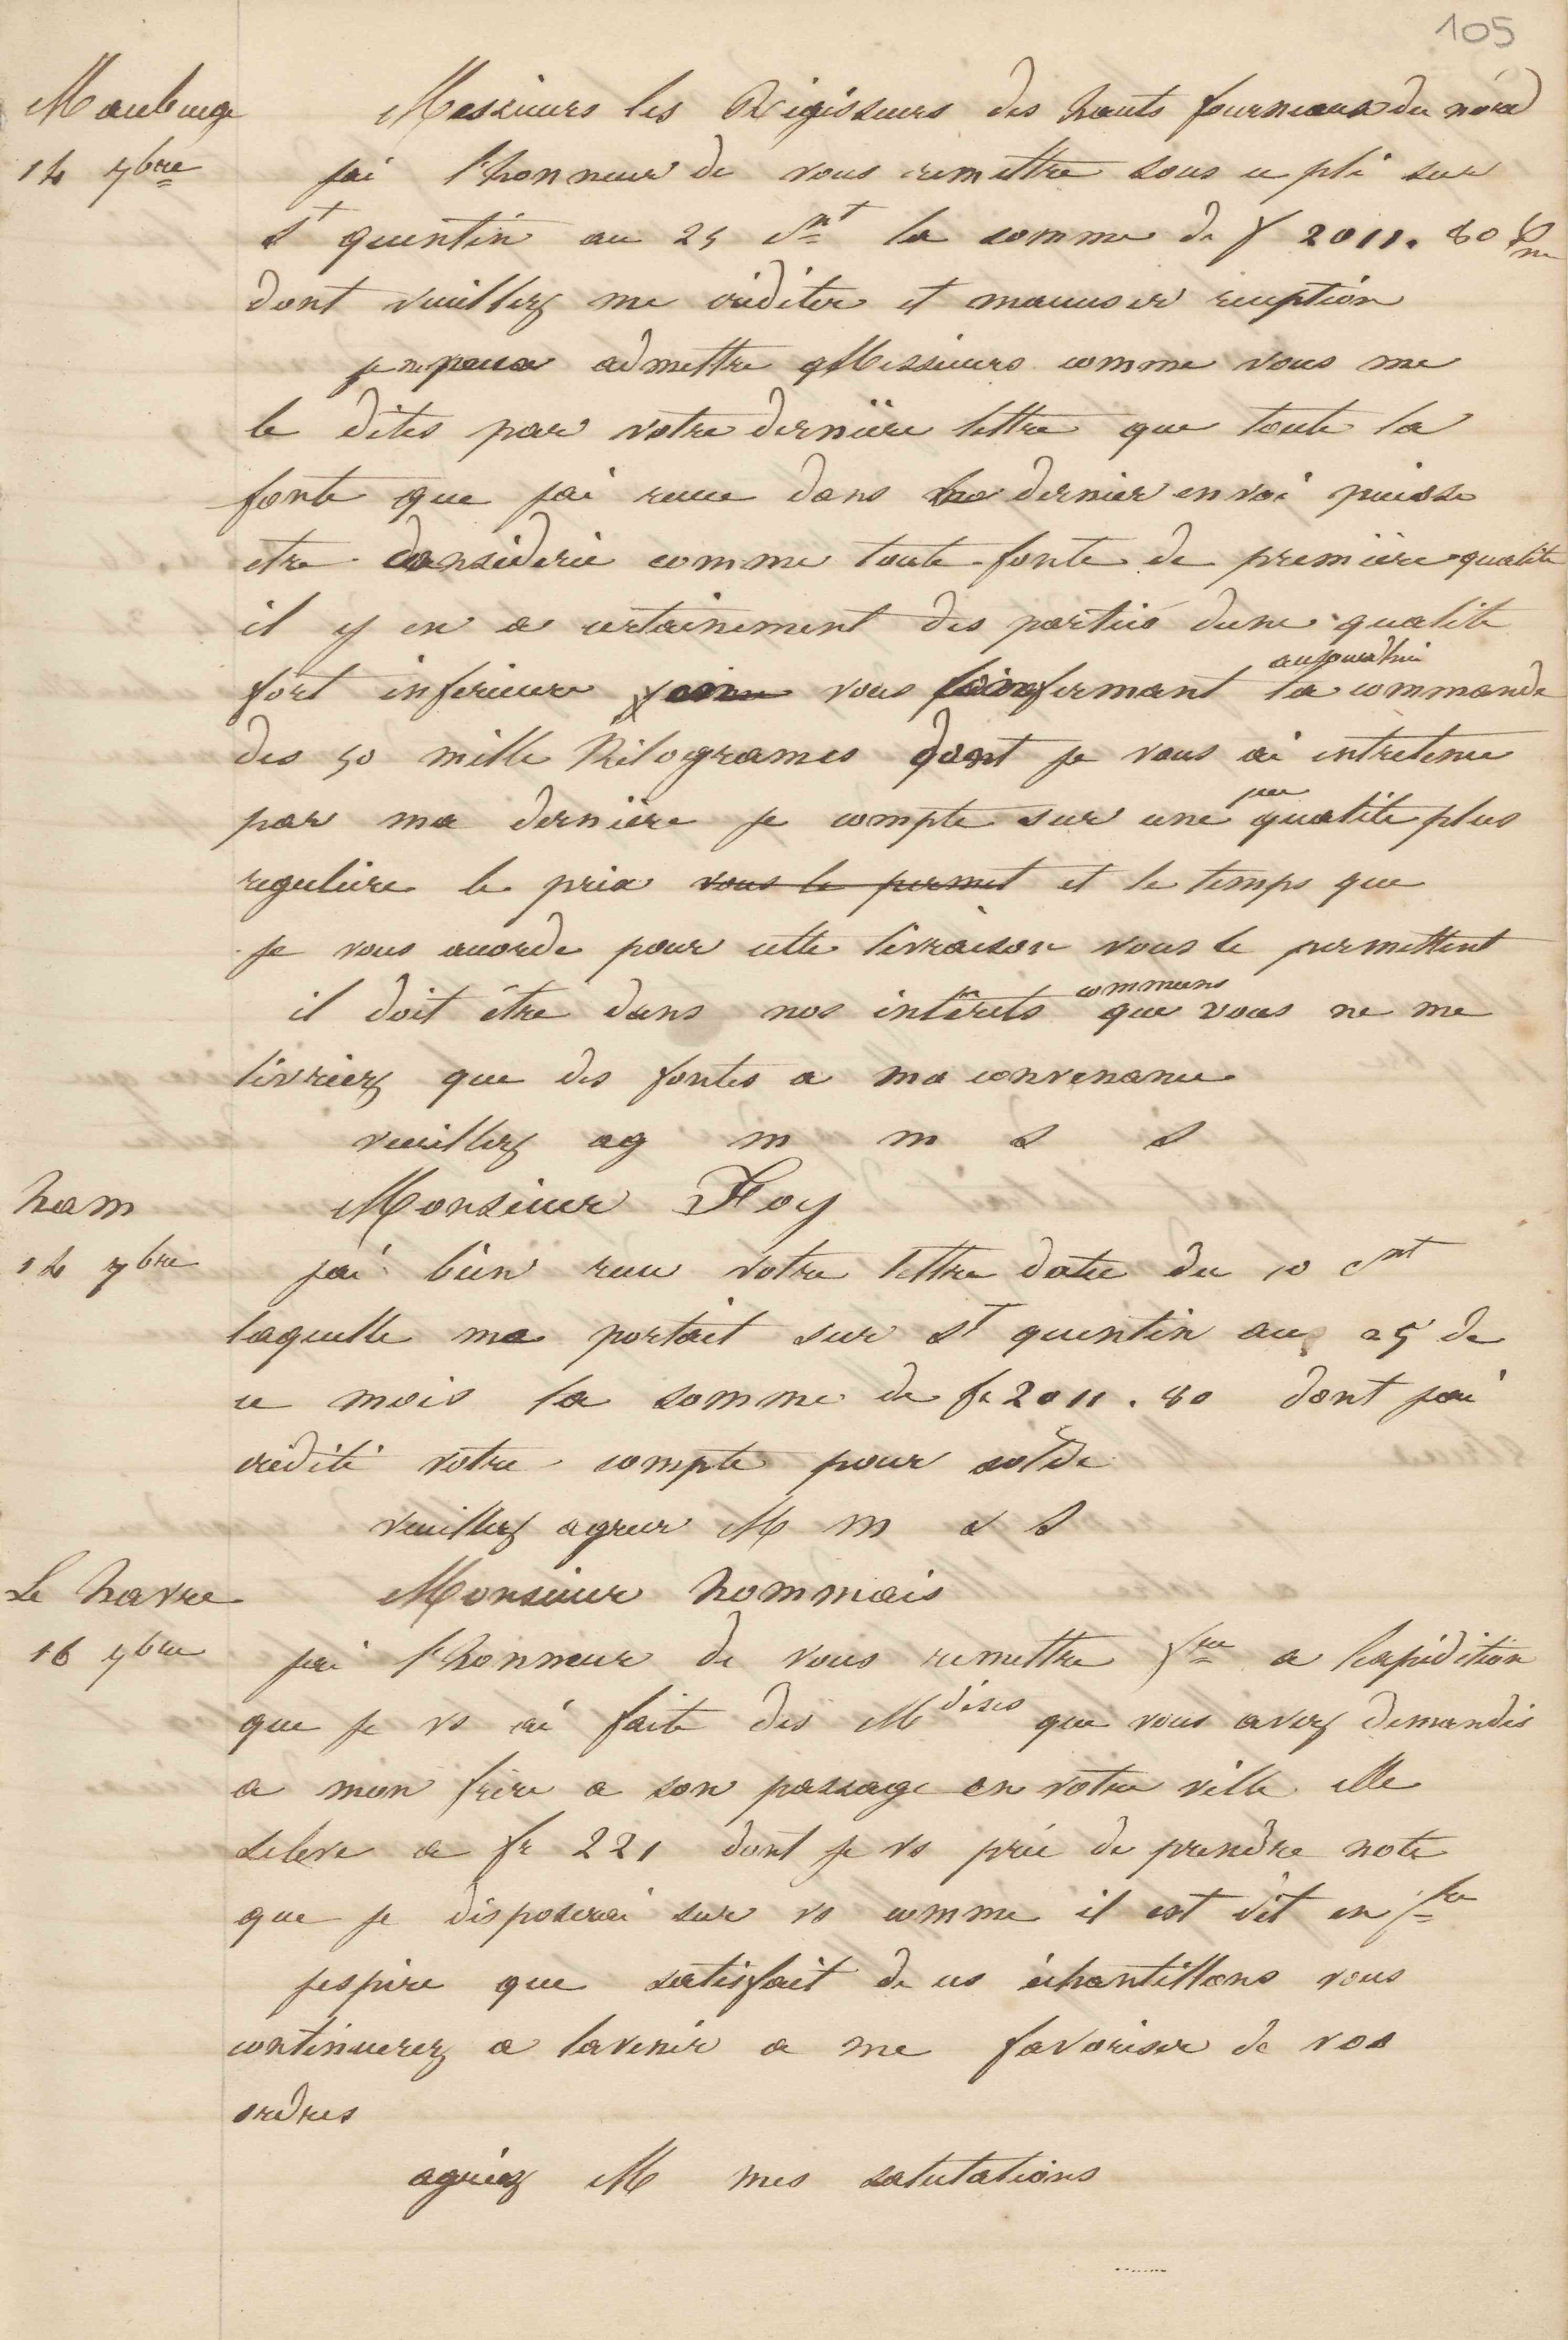 105
Maubeuge
Messieurs les Régisseurs des hauts fourneaux du nord
14 7bre
jai l'honneur de vous remettre sous ce pli sur
St quentin au 25 ct la somme de f 2011. 80
dont veuillez me créditer et maccuser reception
je ne peux admettre Messieurs comme vous me
le dites par votre dernière lettre que toute la
fonte que jai recue dans dernier envoi puisse
etre considerée comme toute fonte de première qualité
il y en a certainement des parties dune qualite
aujourdhui
fort inferieure vous confermant la commande
des 50 mille Kilogrames dont je vous ai entretenu
par ma dernière je compte sur une qualité plus
reguliere le prix vous le permet et le temps que
je vous accorde pour cette livraison vous le permettent
communs
il doit être dans nos intérêts que vous ne me
livriez que des fontes a ma convenance
veuillez ag m m s s
ham
Monsieur Foy
14 7bre
jai bien recu votre lettre datée du 10 ct
laquelle me portait sur St quentin au 25 de
ce mois la somme de fr 2011. 80 dont jai
crédité votre compte pour solde
veuillez agreer M m s S
Le havre
Monsieur hommais
16 7bre
jai l'honneur de vous remettre fre a lexpédition
que je vs ai faite des Mdises que vous avez demandés
a mon frère a son passage en votre ville elle
seleve a fr 221 dont je vs prie de prendre note
que je disposerai sur vs comme il est dit en fre
jespère que satisfait de ces échantillons vous
continuerez a lavenir a me favoriser de vos
ordres
agréez M mes salutations